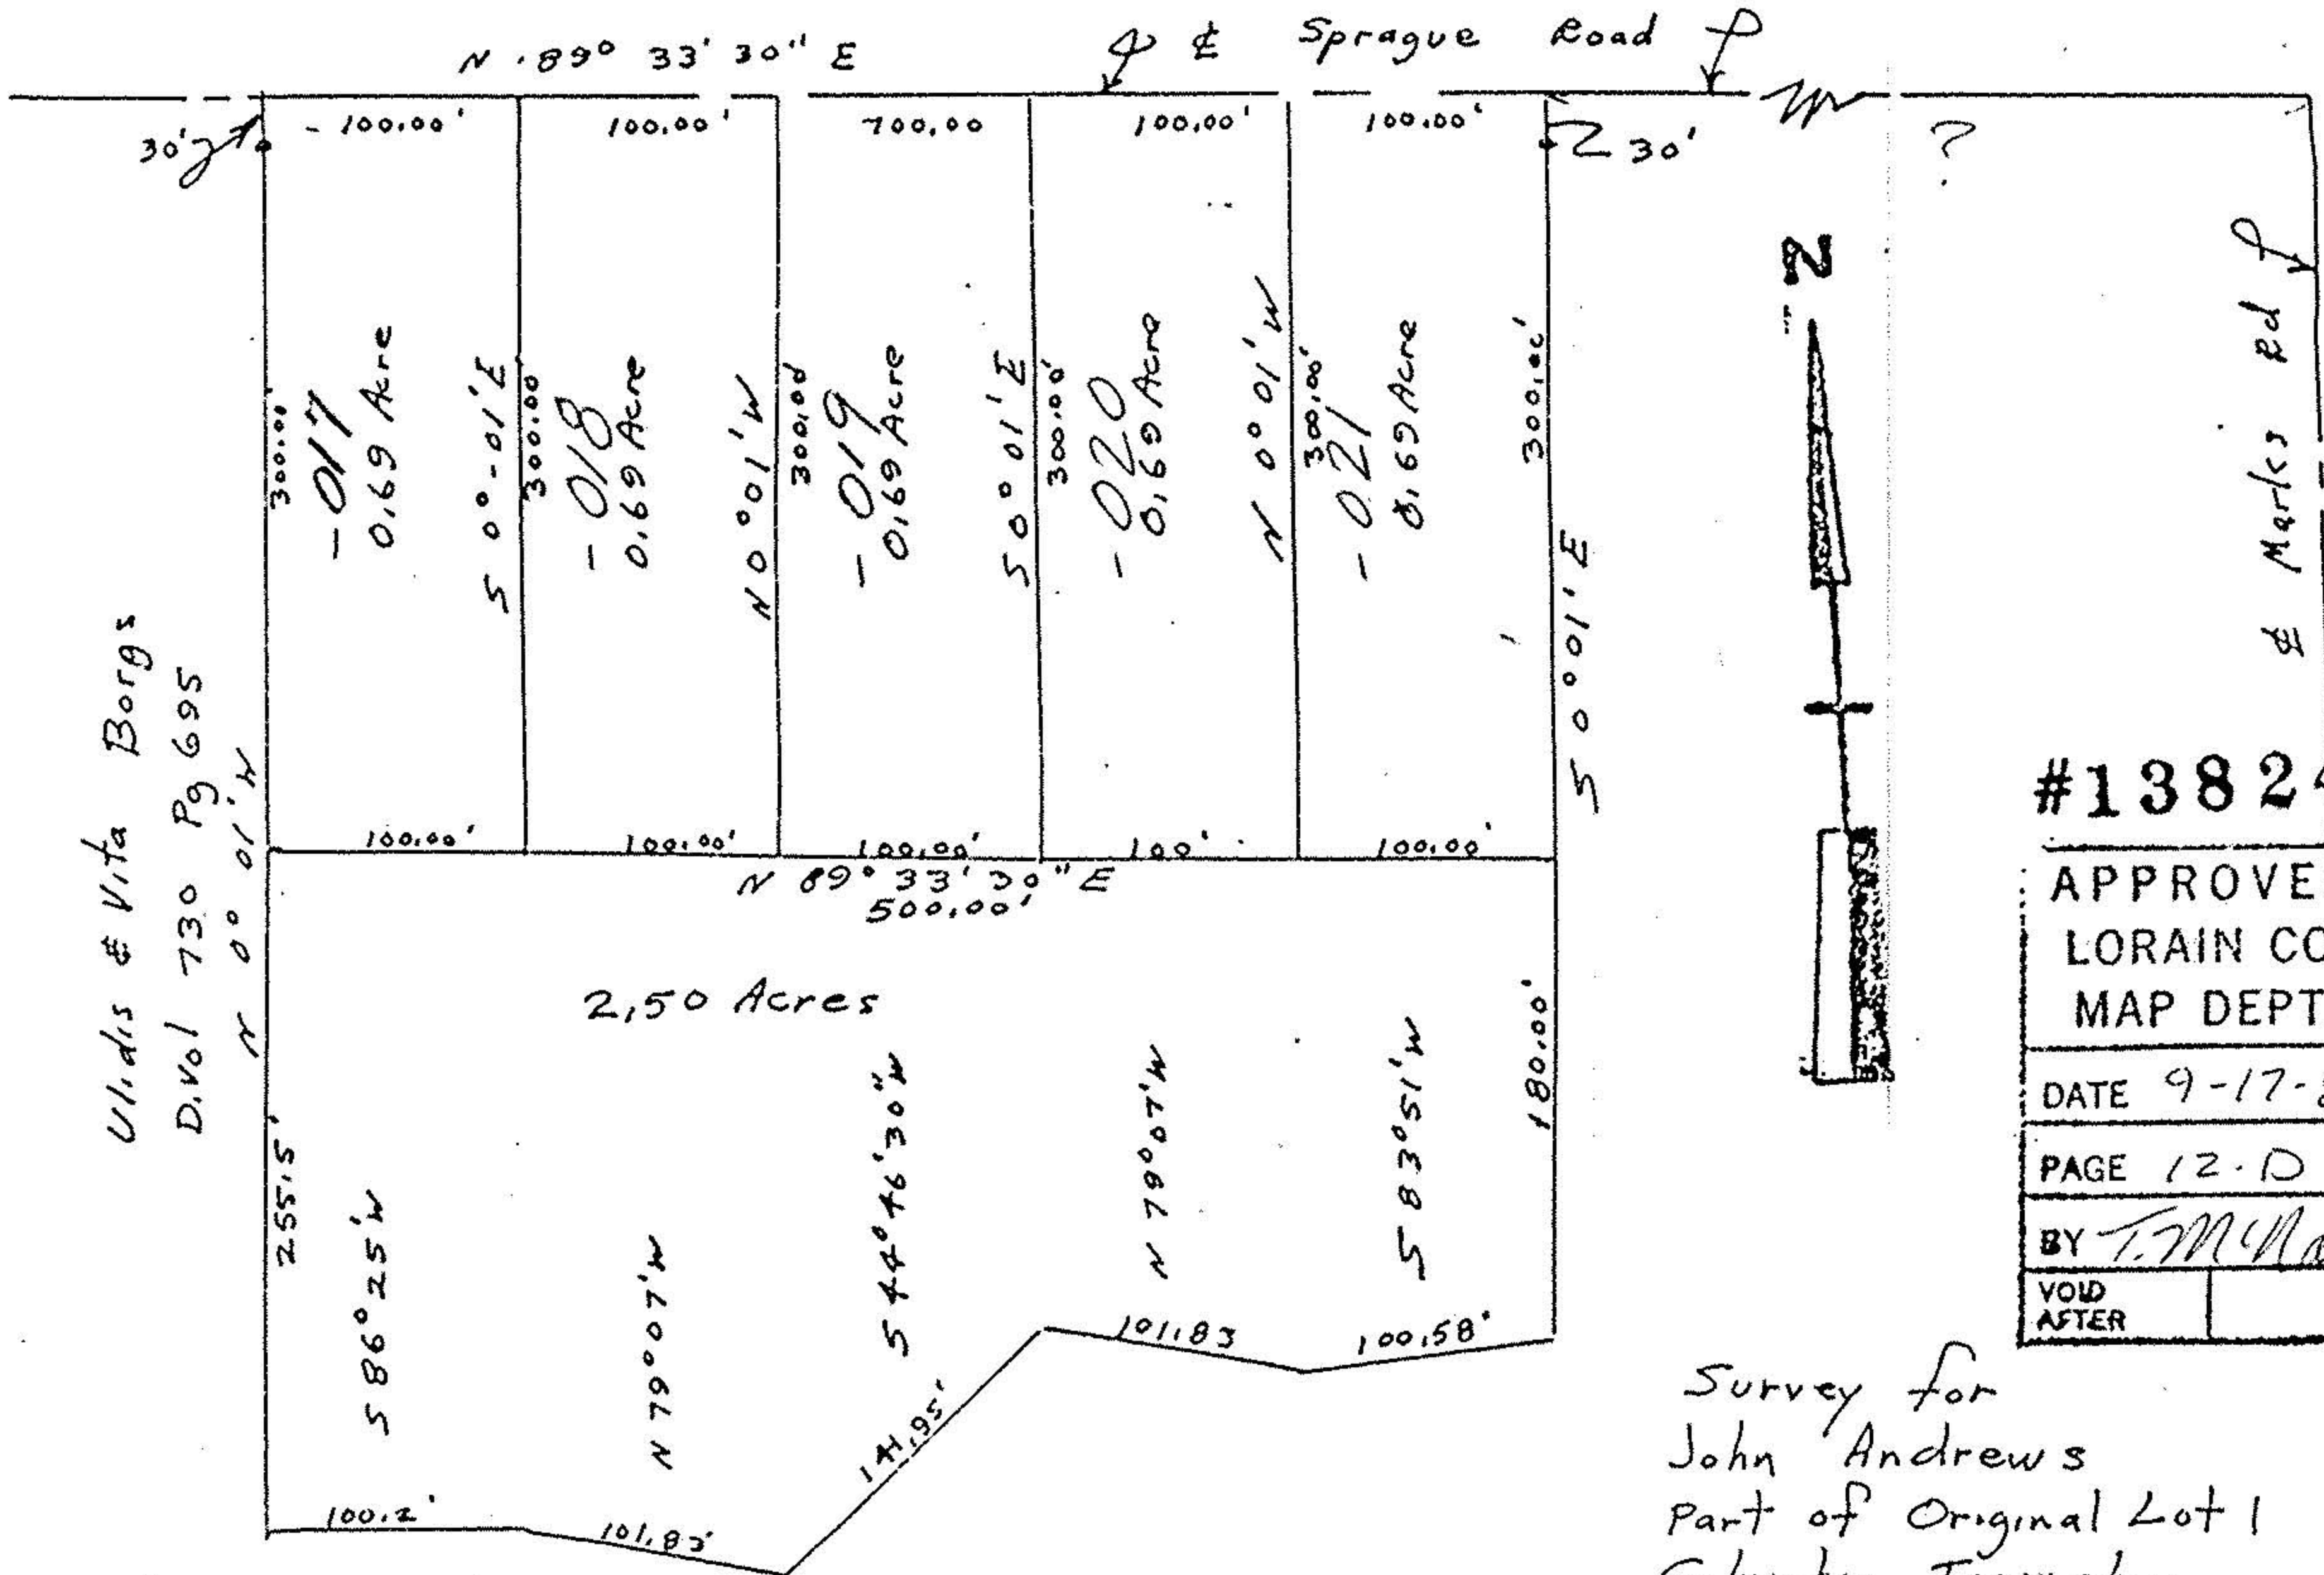 N 89° 33' 30" E
₵ Sprague Road
30'
100.00'
100.00'
100.00
100.00'
100.00'
30'
?
300.00'
-017
0.69 Acre
S 0°-01' E
300.00
-018
0.69 Acre
N 0° 01' W
300.00'
-019
0.69 Acre
S 0° 01' E
300.00'
-020
0.69 Acre
N 0° 01' W
300.00'
-021
0.69 Acre
300.00'
S 0° 01' E
N
₵ Marks Rd
Uldis & Vita Borgs
D.Vol 730 Pg 695
N 0° 01' W
100.00'
100.00'
100.00'
100'
100.00'
N 89° 33' 30" E
500.00'
2.50 Acres
255.5'
S 86° 25' W
N 79° 07' W
S 44° 46' 30" W
N 79° 07' W
S 83° 51' W
180.00'
100.2'
101.83'
141.95'
101.83
100.58'
#13824
APPROVE
LORAIN CO
MAP DEPT
DATE 9-17-
PAGE 12-D
BY
VOID
AFTER
Survey for
John Andrews
Part of Original Lot 1